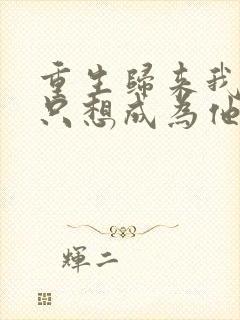 重生歸来我
只想成為他
輝二